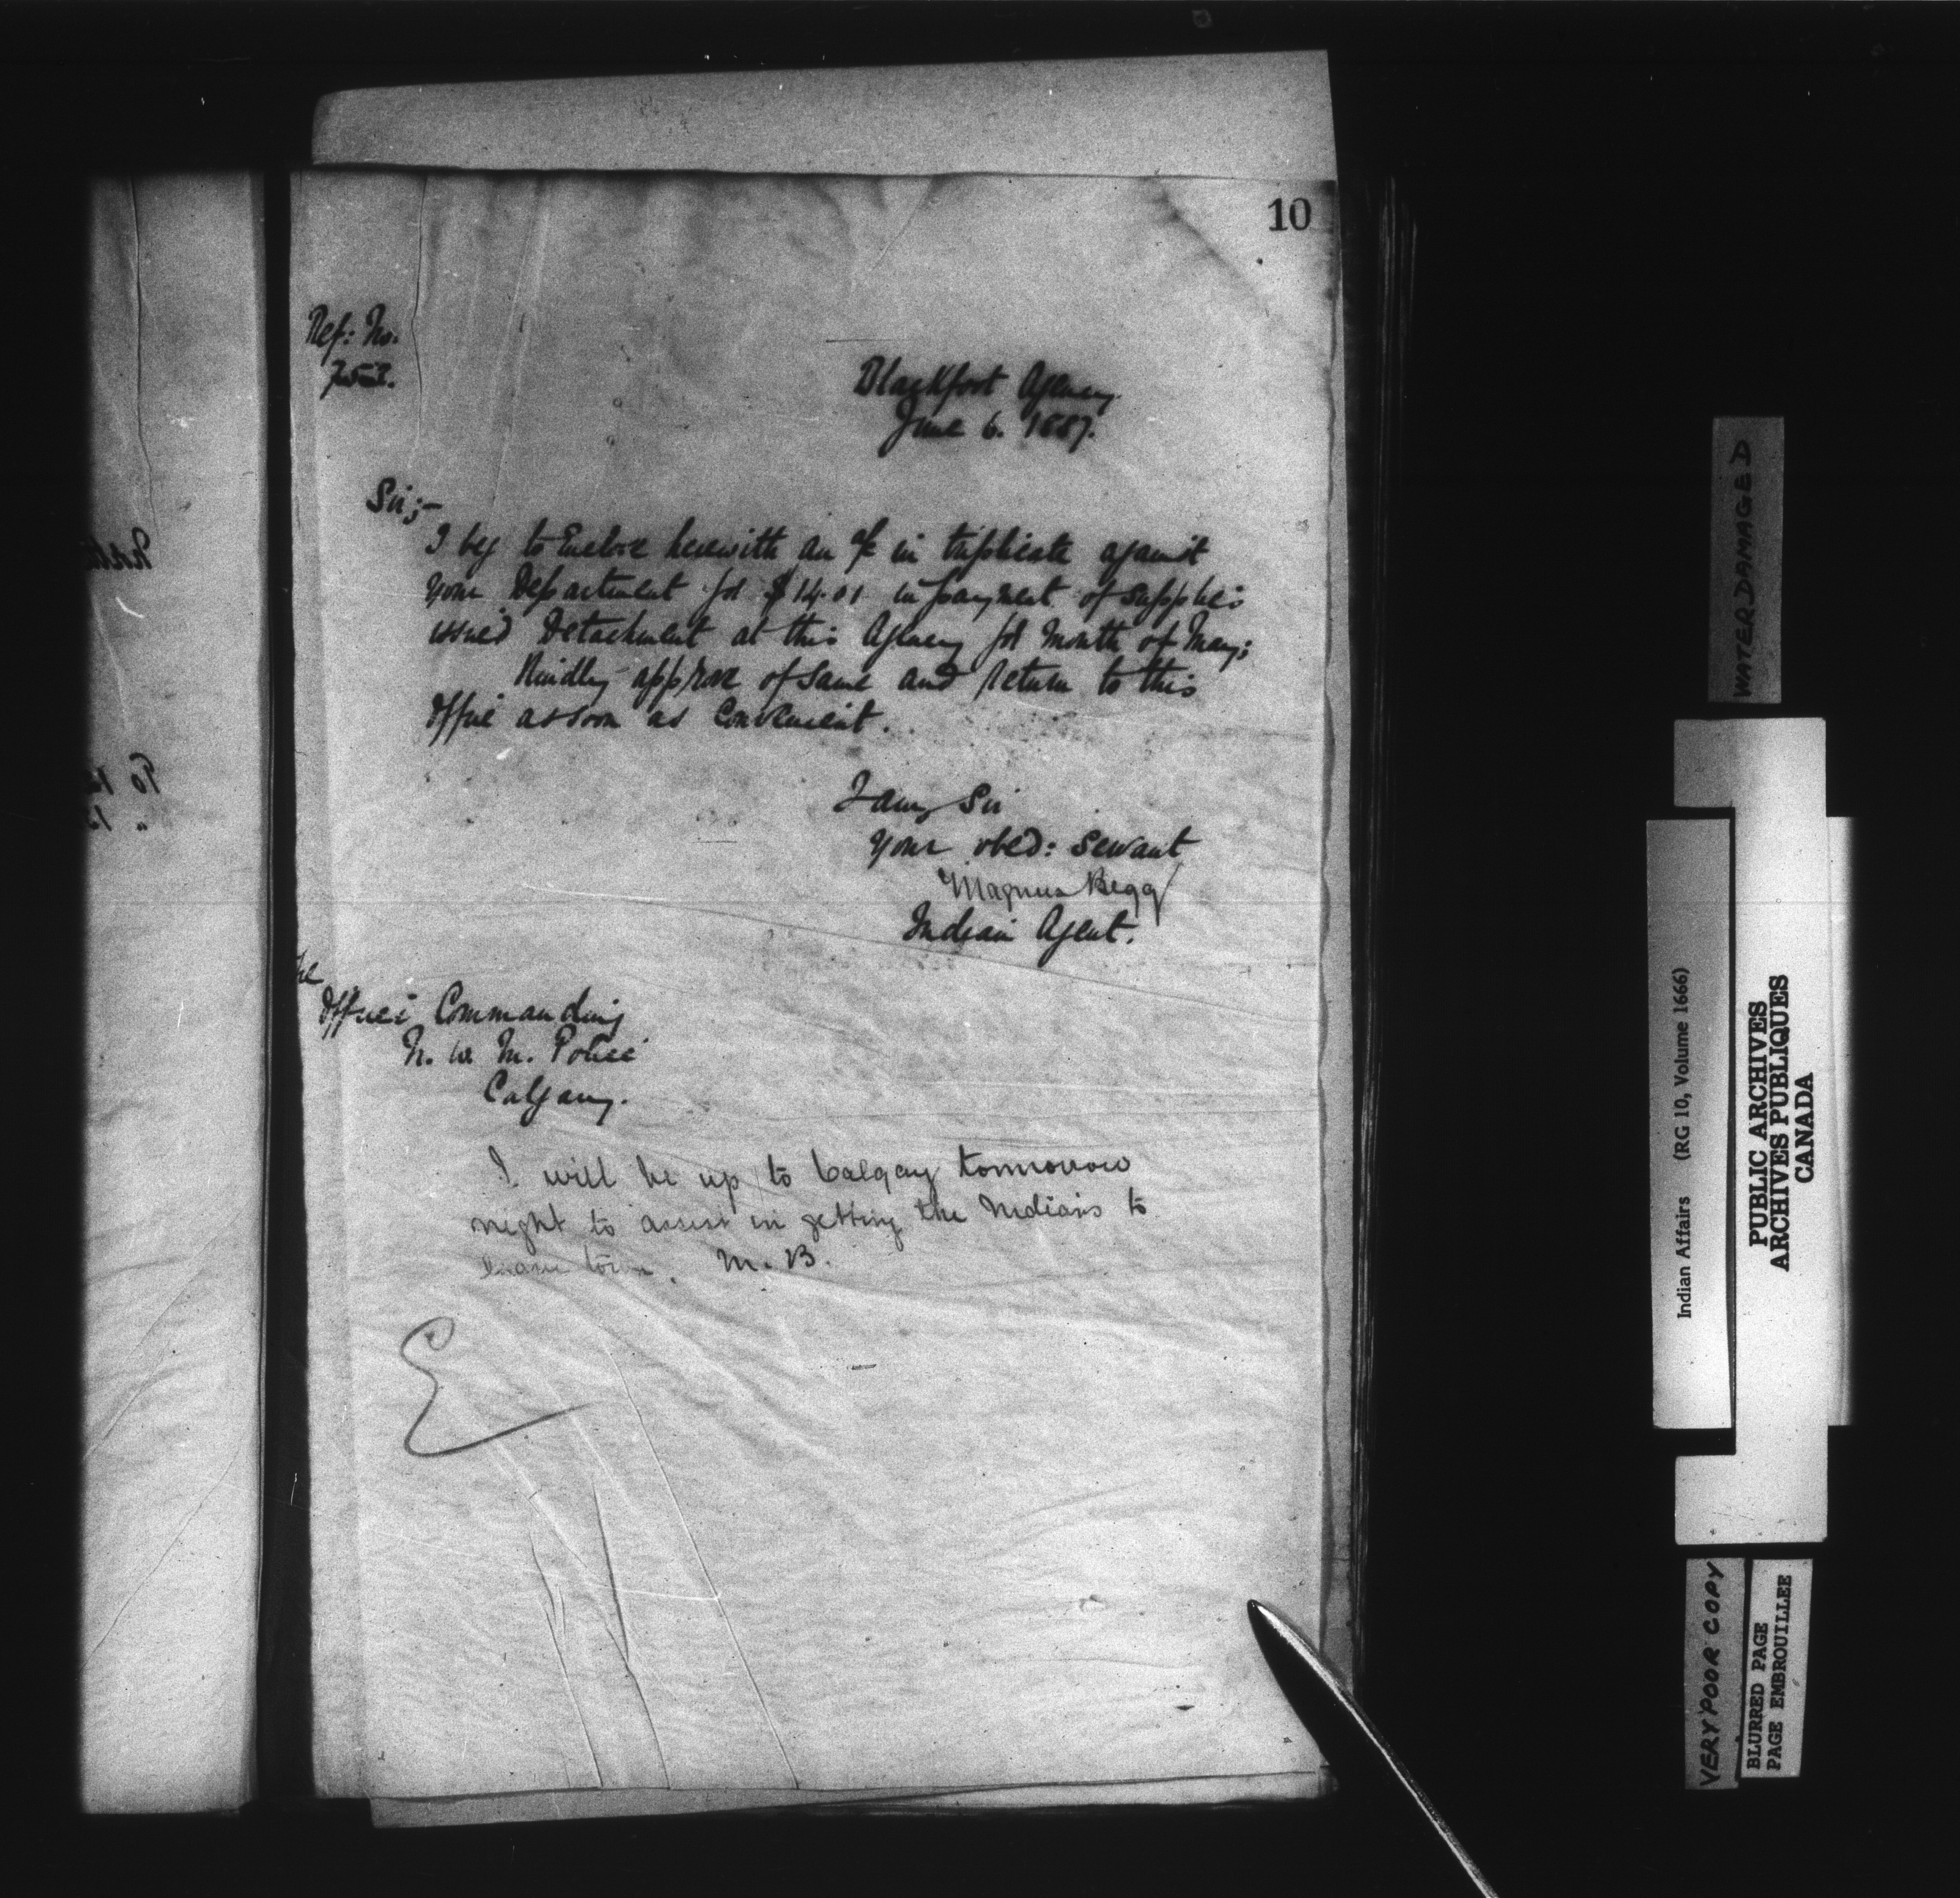 10
Ref: No.
Blackfoot Agency
June 6. 1887.
Sir;-
I beg to Enclose herewith an a/c in triplicate against
your Department for $14.01 in payment of supplies
issued Detachment at this Agency for Month of May;
Kindly approve of same and return to this
Office as soon as Convenient.
I am, Sir
Your obed: Servant
Magnus Begg
Indian Agent.
The
Officer Commanding
N. W. M. Police
Calgary.
I will be up to Calgary tommorow
night to assist in getting the Indians to
leave town. M. B.
To
WATER DAMAGED
Indian Affairs (RG 10, Volume 1666)
PUBLIC ARCHIVES
ARCHIVES PUBLIQUES
CANADA
VERY POOR COPY
BLURRED PAGE
PAGE EMBROUILLEE